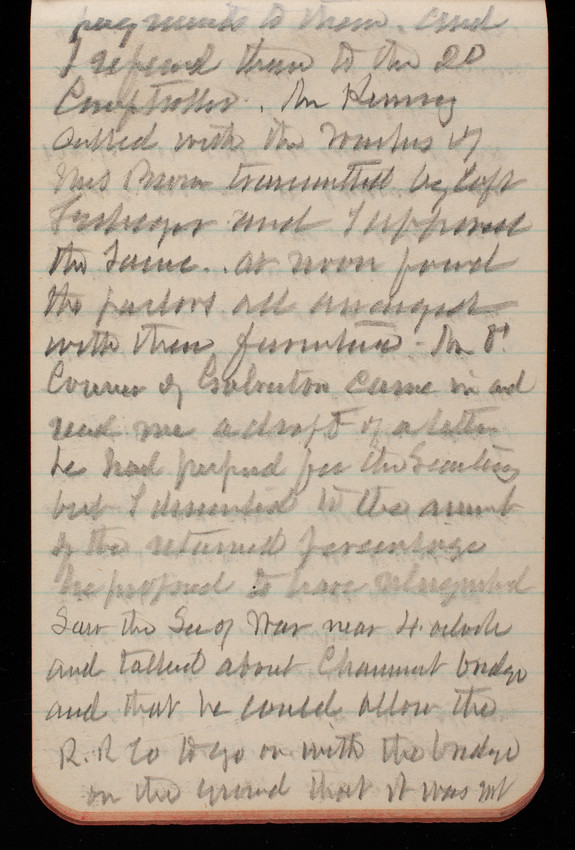 payments to them. and
I refered them to the 2d
Comptroller. Mr Kenney
called with the
Mrs Brown transmitted by Capt
and I approved
the same.. at noon found
the parlors all arranged
with their furniture - Mr
of Galveston came in and
read me a draft of a letter
he had prepared for the Secretary
but I dissented to the amount
of the returned percentage
he proposed to have relinquished
Saw the Sec of War near 4 oclock
and talked about Chaumont bridge
and that he could allow the
R.R Co to go on with the bridge
on the ground that it was not